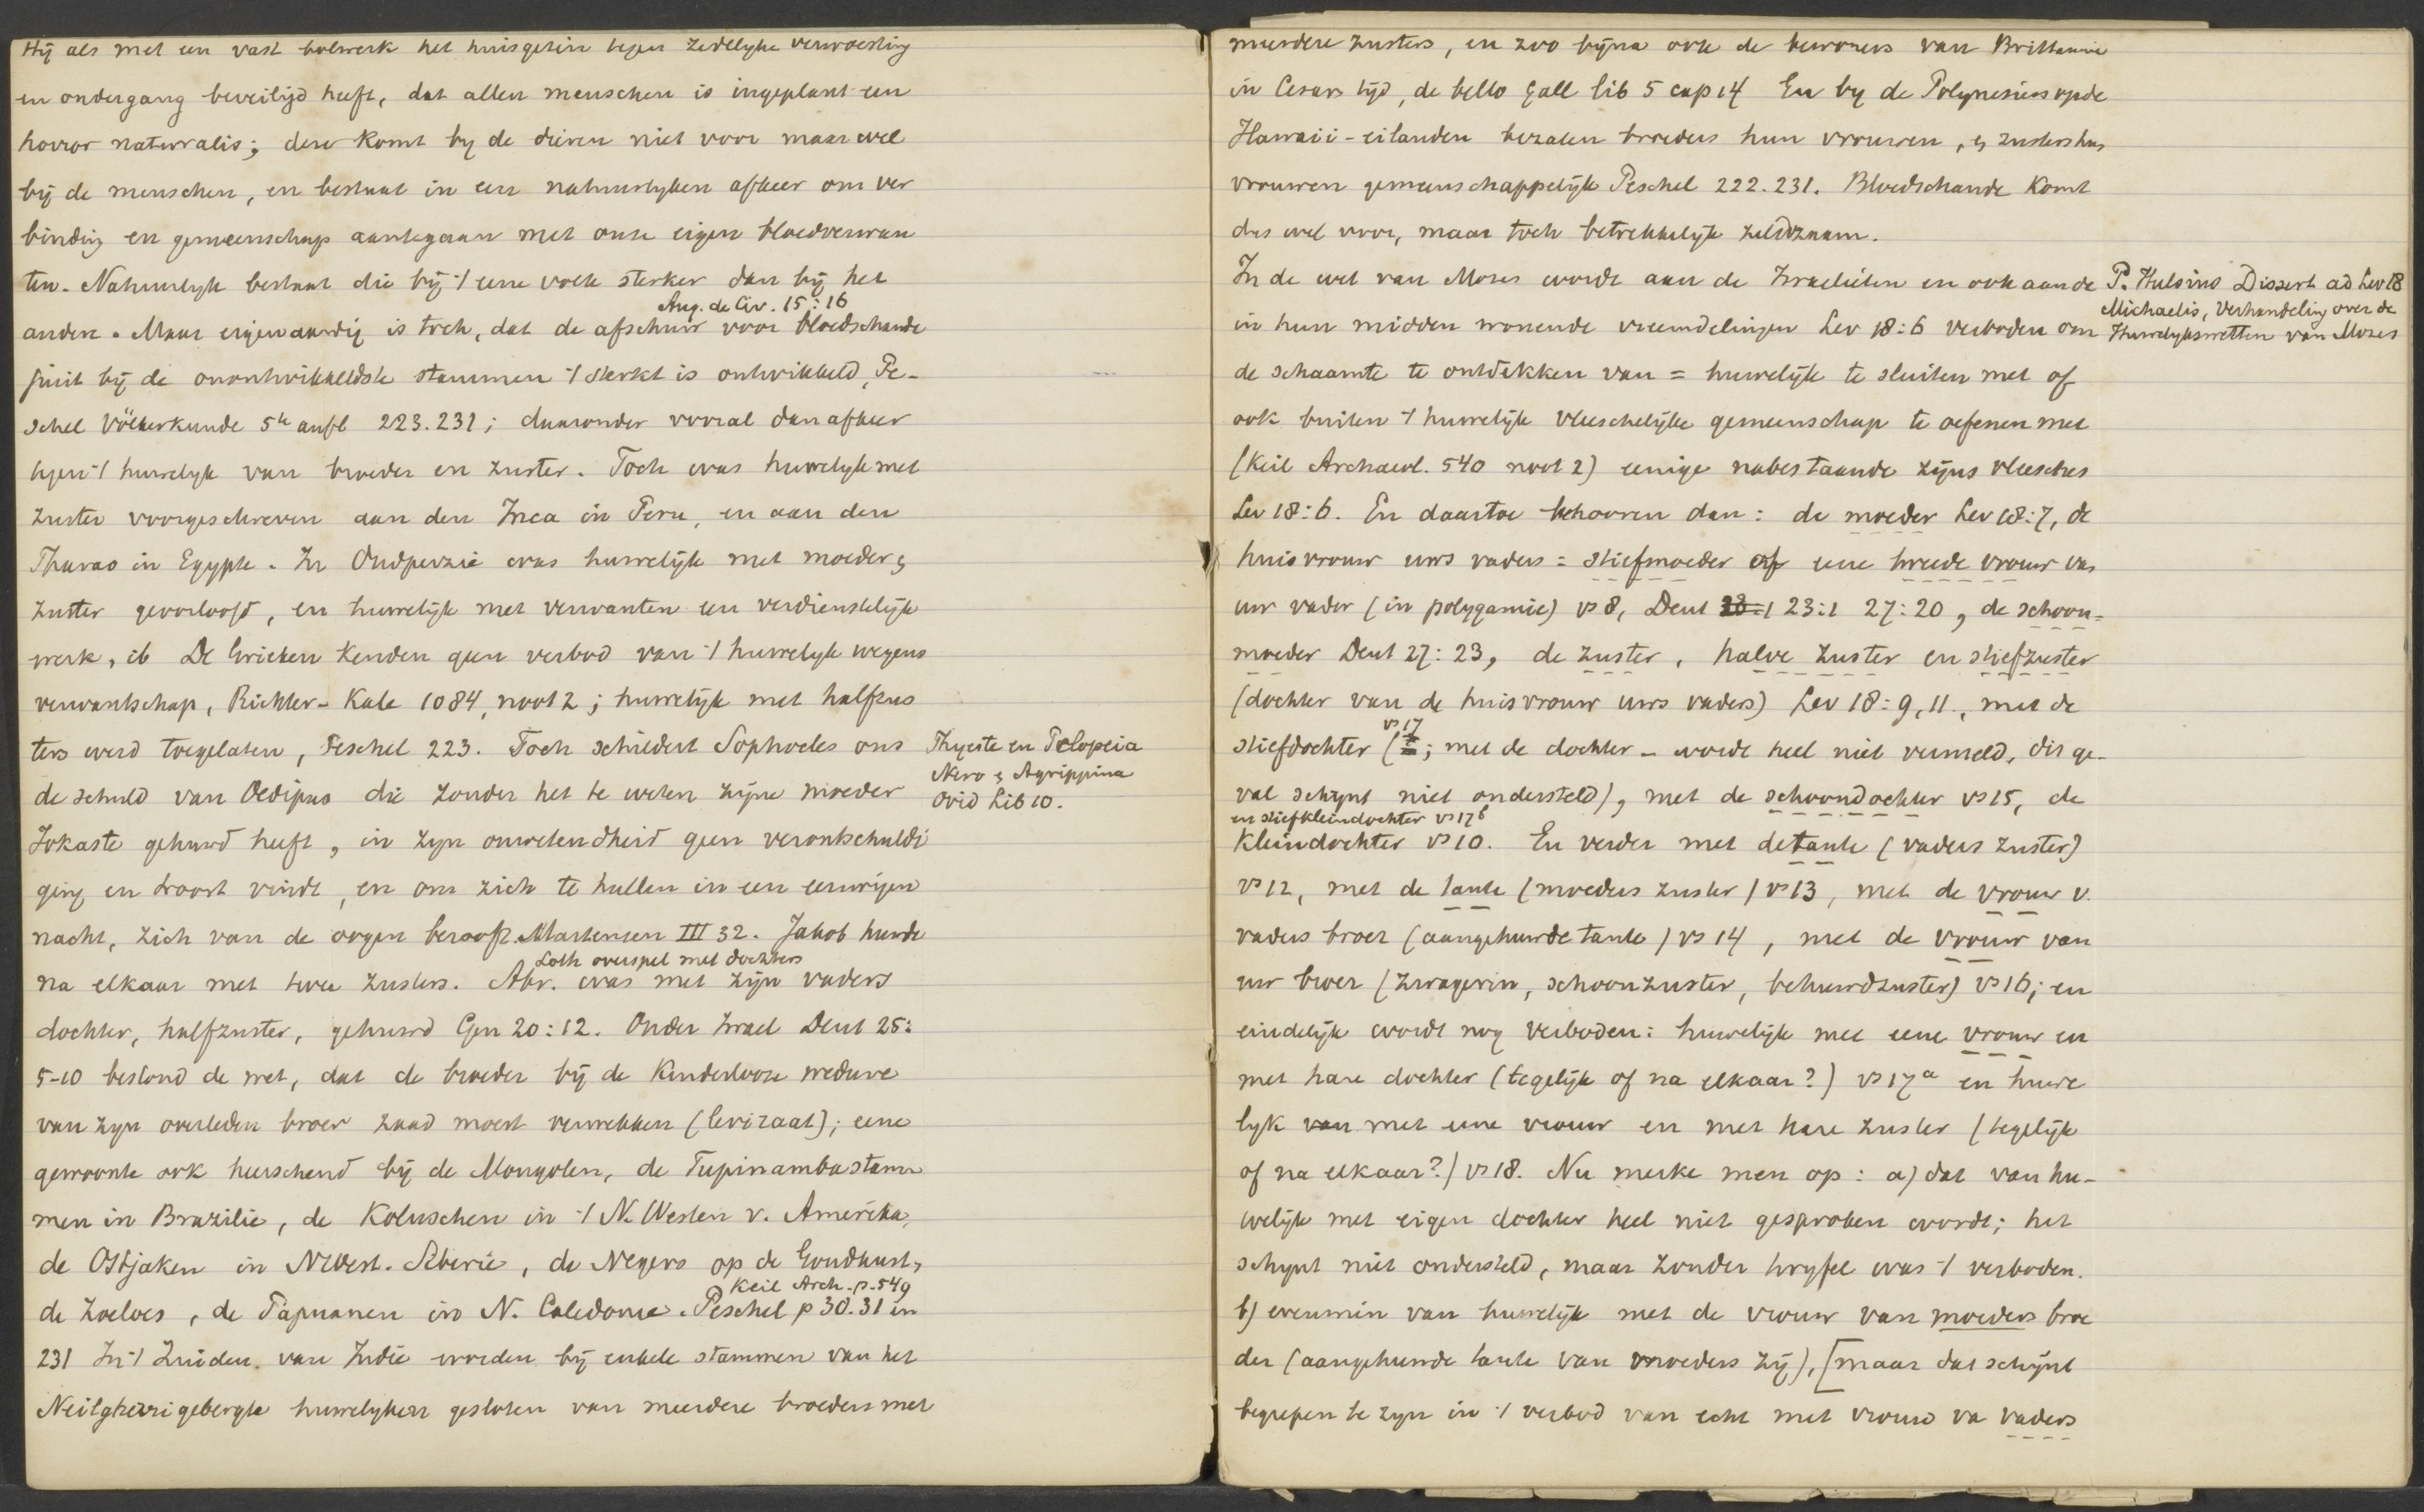 Hij als met een vast bolwerk het huisgezin tegen zedelyke verwoesting
en ondergang beveiligd heeft, dat allen menschen is ingeplant een
horror naturalis; deze komt by de dieren niet voor maar wel
bij de menschen, en bestaat in een natuurlyken afkeer om ver
binding en gemeenschap aantegaan met onze eigen bloedverwan
ten. Natuurlyk bestaat die bij 't eene volk sterker dan bij het
Aug. de Civ. 15:16
andere. Maar eigenaardig is toch, dat de afschuw voor bloedschande
juist bij de onontwikkeldste stammen 't sterkst is ontwikkeld, Pe-
schel Völkerkunde 5te aufl 223.231; daaronder vooral dan afkeer
tegen 't huwelyk van broeder en zuster. Toch was huwelyk met
zuster voorgeschreven aan den Inca in Peru, en aan den
Pharao in Egypte. In Oudperzië was huwelijk met moeder &
zuster geoorloofd, en huwelijk met verwanten een verdienstelijk
werk, ib De Grieken kenden geen verbod van 't huwelyk wegens
verwantschap, Richter-Kahl 1084, noot 2; huwelijk met halfzus
ters werd toegelaten, Peschel 223. Toch schildert Sophocles ons
de schuld van Oedipus die zonder het te weten zijne moeder
Jokaste gehuwd heeft, in zyn onwetendheid geen verontschuldi
ging en troost vindt, en om zich te hullen in een eeuwigen
nacht, zich van de oogen berooft. Martensen III 32. Jakob huwde
Loth overspel met dochters
na elkaar met twee zusters. Abr. was met zijn vaders
dochter, halfzuster, gehuwd Gen 20:12. Onder Israel Deut 25:
5-10 bestond de wet, dat de broeder bij de kinderlooze weduwe
van zyn overleden broer zaad moest verwekken (leviraat); eene
gewoonte ook heerschend bij de Mongolen, de Tupinambastam
men in Brazilie, de Koluschen in 't N. Westen v. Amerika,
de Ostjaken in NWest. Siberië, de Negers op de Goudkust,
Keil Arch. p. 549
de Zoeloes, de Papuanen in N. Caledonie. Peschel p 30.31 en
231 In 't Zuiden van Indië worden bij enkele stammen van het
Neilgherri gebergte huwelyken gesloten van meerdere broeders met
Thyeste en Pelopeia
Nero & Agrippina
Ovid Lib 10.
meerdere zusters, en zoo bijna ook de bewoners van Brittannie
in Cesars tijd, de bello Gall lib 5 cap 14 En by de Polynesiers op de
Hawaii-eilanden bezaten broeders hun vrouwen, & zusters hun
vrouwen gemeenschappelijk Peschel 222.231. Bloedschande komt
dus wel voor, maar toch betrekkelijk zeldzaam.
In de wet van Mozes wordt aan de Israelieten en ook aan de
in hun midden wonende vreemdelingen Lev 18:6 verboden om
de schaamte te ontdekken van = huwelijk te sluiten met of
ook buiten 't huwelijk vleeschelijke gemeenschap te oefenen met
(Keil Archaeol. 540 noot 2) eenige nabestaande zijns vleesches
Lev 18:6. En daartoe behooren dan: de moeder Lev 18:7, de
huisvrouw uws vaders = stiefmoeder of eene tweede vrouw van
uw vader (in polygamie) vs 8, Deut 23:1 27:20, de schoon-
moeder Deut 27:23, de zuster, halve zuster en stiefzuster
(dochter van de huisvrouw uws vaders) Lev 18:9, 11., met de
vs 17
stiefdochter (; met de dochter – wordt heel niet vermeld, dis ge-
val schynt niet ondersteld), met de schoondochter vs 15, de
en stiefkleindochter vs 17b
kleindochter vs 10. En verder met de tante (vaders zuster)
vs 12, met de tante (moeders zuster) vs 13, met de vrouw v.
vaders broer (aangehuwde tante) vs 14, met de vrouw van
uw broer (zwagerin, schoonzuster, behuwdzuster) vs 16; en
eindelijk wordt nog verboden: huwelijk met eene vrouw en
met hare dochter (tegelijk of na elkaar?) vs 17a en huwe
lyk van met eene vrouw en met hare zuster (tegelijk
of na elkaar?) vs 18. Nu merke men op: a) dat van hu-
welijk met eigen dochter heel niet gesproken wordt; het
schynt niet ondersteld, maar zonder twyfel was 't verboden.
b) evenmin van huwelijk met de vrouw van moeders broe
der (aangehuwde tante van moeders zij), [maar dat schijnt
begrepen te zyn in 't verbod van echt met vrouw va vaders
P. Hulsius Dissert ad Lev 18
Michaelis, Verhandeling over de
Huwelykswetten van Mozes